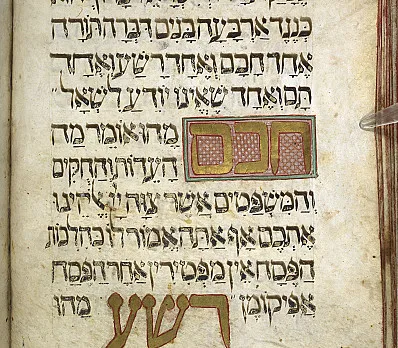 כנגד ארבעה בנים דברה תורה
אחד חכם ואחד רשע ואחד
תם ואחד שאינו יודע לשאל
חכם מהו אומר מה
העדות והחקים
והמשפטים אשר צוה יי אלהינו
אתכם אף אתה אמור לו כהלכות
הפסח אין מפטירין אחר הפסח
אפיקומן רשע מהו